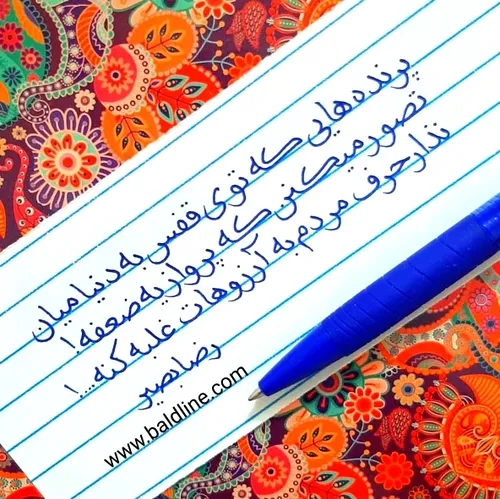 پرنده هایی که توی قفس به دنیا میان
تصور میکنن که پرواز یه ضعفه!
نذار حرف مردم به آرزوهات غلبه کنه...!
رضا نصیر
www.baldline.com